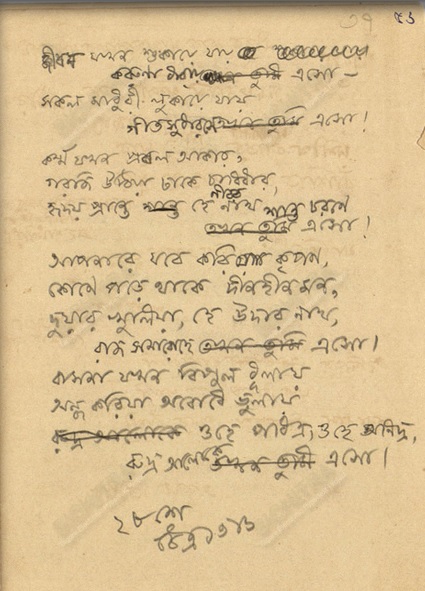 জীবন যখন শুকায়ে যায়
করুণা ধারায় তখন তুমি এসো —
সকল মাধুরী লুকায়ে যায়
গীতসুধারসে তখন তুমি এসো!
কর্ম্ম যখন প্রবল আকার,
গরজি উঠিয়া ঢাকে চারিধার,
হৃদয় প্রান্তে হে নীরব নাথ শান্ত চরণে
তখন তুমি এসো!
আপনারে যবে করিয়া কৃপণ,
কোণে পড়ে থাকে দীনহীন মন,
দুয়ার খুলিয়া, হে উদার নাথ,
রাজ সমারোহে তখন তুমি এসো।
বাসনা যখন বিপুল ধূলায়
অন্ধ করিয়া অবোধে ভুলায়
রুদ্র আলোকে ওহে পবিত্র, ওহে অনিদ্র,
রুদ্র আলোকে তখন তুমি এসো।
২৮শে
চৈত্র ১৩১৬